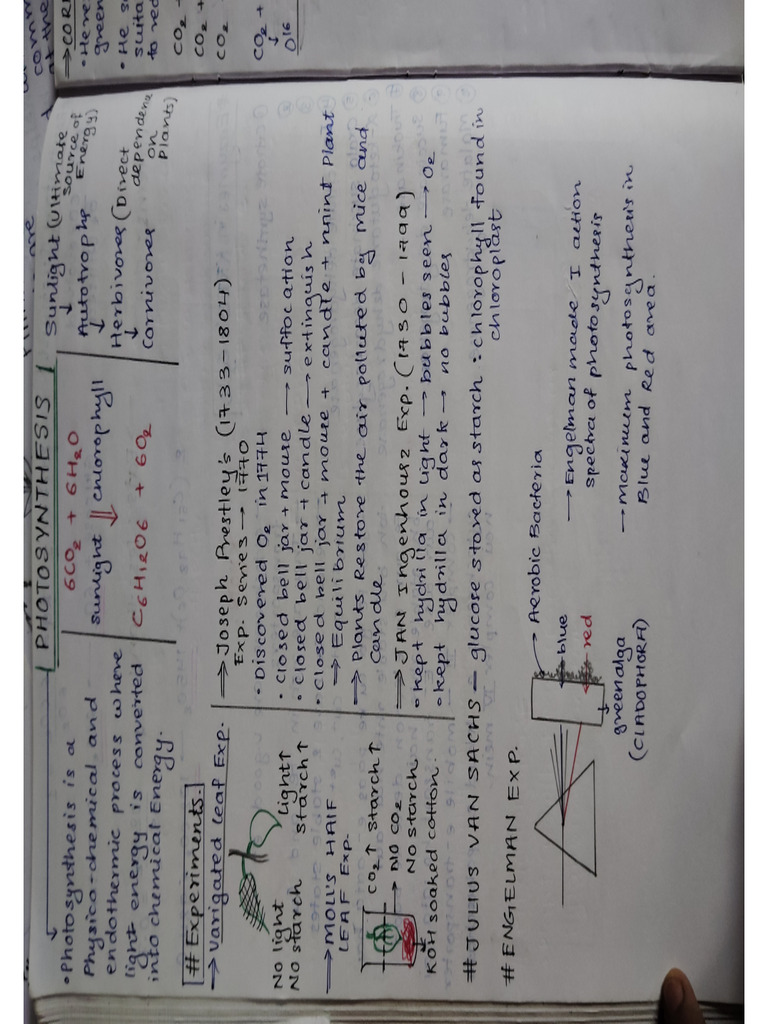 PHOTOSYNTHESIS
• Photosynthesis is a
Physico-chemical and
endothermic process where
light energy is converted
into chemical Energy.
6CO2 + 6H2O
sunlight ⇓ chlorophyll
C6H12O6 + 6O2
Sunlight (Ultimate
source of
Energy)
↓
Autotrophs
↓
Herbivores (Direct
dependence
on
Plants)
↓
Carnivores
# Experiments.
→ Varigated leaf Exp.
No light
No starch
light↑
starch↑
→ MOLL'S HAlF
LEAF Exp.
CO2↑ starch↑
→ NO CO2
No starch
KOH soaked cotton.
→ Joseph Prestley's (1733-1804)
Exp. Series → 1770
• Discovered O2 in 1774
• Closed bell jar + mouse → suffocation
• Closed bell jar + candle → extinguish
• Closed bell jar + mouse + candle + mint Plant
→ Equilibrium
→ Plants Restore the air polluted by mice and
Candle.
→ JAN Ingenhousz Exp. (1730-1799)
• Kept hydrilla in light → bubbles seen → O2
• Kept hydrilla in dark → no bubbles
# JULIUS VAN SACHS — glucose stored as starch : chlorophyll found in
chloroplast
# ENGELMAN EXP.
→ Aerobic Bacteria
→ blue
→ red
green alga
(ClADOPHORA)
→ Engelman made I action
spectra of photosynthesis
→ Maximum photosynthesis in
Blue and Red area.
→ CORN
• Here
green
• He s
suita
to red
CO2 +
CO2 +
CO2
CO2 +
↓
O16